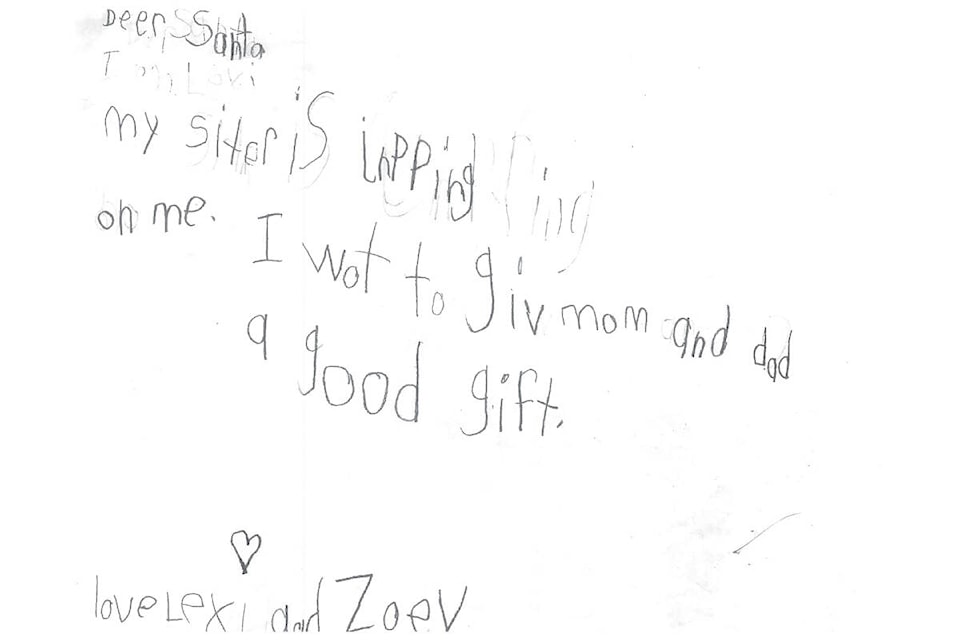 Deer Santa
I am Lexi
my siter is inpping
on me. I wot to giv mom and dad
a good gift.
love Lexi and Zoey